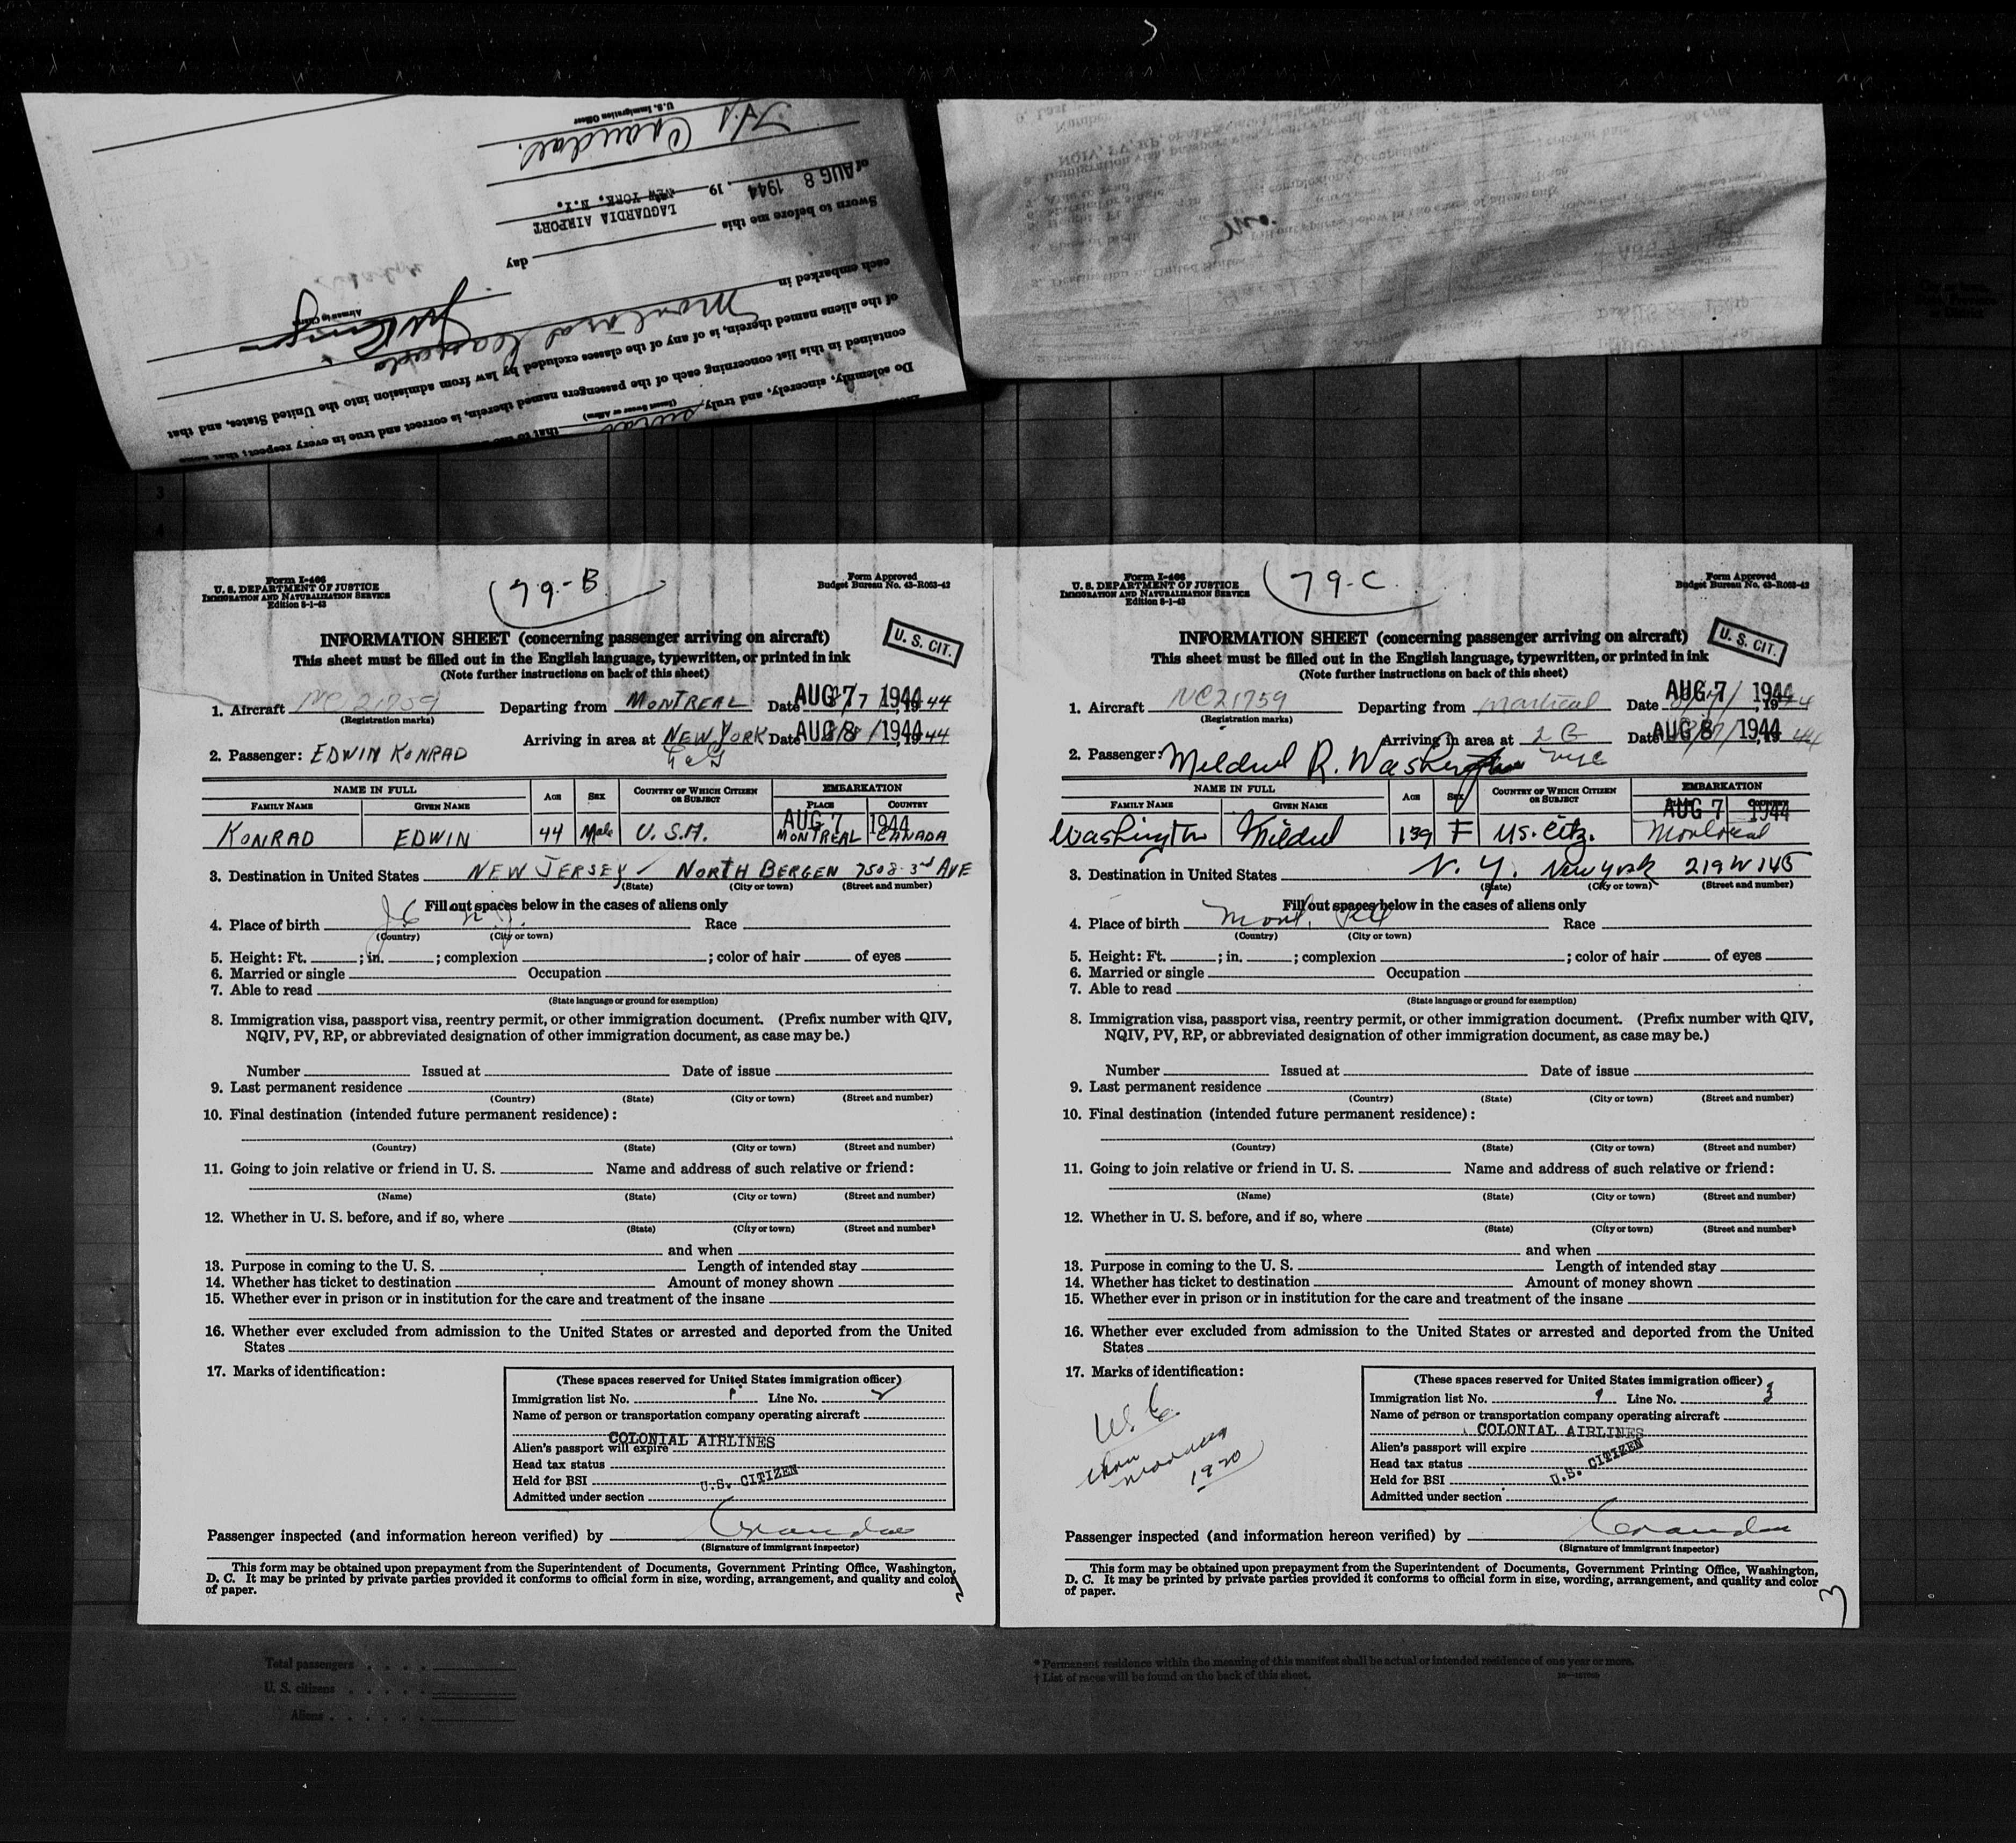 U.S. Immigration Officer
of AUG 8 1944, 19
NEW YORK, N.Y.
LAGUARDIA AIRPORT
Sworn to before me this
day
each embarked in Montreal
of the aliens named therein, is of any of the classes excluded by law from admission into the United States, and that
contained in this list concerning each of the passengers named therein, is correct and true in every respect; that
Do solemnly, sincerely, and truly
3
4
Form I-466
U. S. DEPARTMENT OF JUSTICE
IMMIGRATION AND NATURALIZATION SERVICE
Edition 8-1-43
79-B
Form Approved
Budget Bureau No. 43-R063-42
INFORMATION SHEET (concerning passenger arriving on aircraft)
U. S. CIT.
This sheet must be filled out in the English language, typewritten, or printed in ink
(Note further instructions on back of this sheet)
1. Aircraft NC 21759 Departing from MONTREAL Date AUG 7 1944 8/7, 1944
(Registration marks)
Arriving in area at NEW YORK Date AUG 8 1944 8/8, 1944
LaG
2. Passenger: EDWIN KONRAD
NAME IN FULL AGE SEX COUNTRY OF WHICH CITIZEN OR SUBJECT EMBARKATION
FAMILY NAME GIVEN NAME PLACE COUNTRY
AUG 7 1944
KONRAD EDWIN 44 Male U.S.A. MONTREAL CANADA
3. Destination in United States NEW JERSEY NORTH BERGEN 7508-3rd AVE
(State) (City or town) (Street and number)
Fill out spaces below in the cases of aliens only
4. Place of birth JC N.J. Race
(Country) (City or town)
5. Height: Ft. ; in. ; complexion ; color of hair of eyes
6. Married or single Occupation
7. Able to read
(State language or ground for exemption)
8. Immigration visa, passport visa, reentry permit, or other immigration document. (Prefix number with QIV,
NQIV, PV, RP, or abbreviated designation of other immigration document, as case may be.)
Number Issued at Date of issue
9. Last permanent residence
(Country) (State) (City or town) (Street and number)
10. Final destination (intended future permanent residence):
(Country) (State) (City or town) (Street and number)
11. Going to join relative or friend in U. S. Name and address of such relative or friend:
(Name) (State) (City or town) (Street and number)
12. Whether in U. S. before, and if so, where
(State) (City or town) (Street and number)
and when
13. Purpose in coming to the U. S. Length of intended stay
14. Whether has ticket to destination Amount of money shown
15. Whether ever in prison or in institution for the care and treatment of the insane
16. Whether ever excluded from admission to the United States or arrested and deported from the United
States
17. Marks of identification:
(These spaces reserved for United States immigration officer)
Immigration list No. 1 Line No. 2
Name of person or transportation company operating aircraft
COLONIAL AIRLINES
Alien's passport will expire
Head tax status
Held for BSI U.S. CITIZEN
Admitted under section
Passenger inspected (and information hereon verified) by
(Signature of immigrant inspector)
This form may be obtained upon prepayment from the Superintendent of Documents, Government Printing Office, Washington,
D. C. It may be printed by private parties provided it conforms to official form in size, wording, arrangement, and quality and color
of paper.
2
Form I-466
U. S. DEPARTMENT OF JUSTICE
IMMIGRATION AND NATURALIZATION SERVICE
Edition 8-1-43
79-C
Form Approved
Budget Bureau No. 43-R063-42
INFORMATION SHEET (concerning passenger arriving on aircraft)
U. S. CIT.
This sheet must be filled out in the English language, typewritten, or printed in ink
(Note further instructions on back of this sheet)
1. Aircraft NC21759 Departing from Montreal Date AUG 7 1944 8/7/, 1944
(Registration marks)
Arriving in area at LG Date AUG 8 1944, 1944
NYC
2. Passenger: Mildred R. Washington
NAME IN FULL AGE SEX COUNTRY OF WHICH CITIZEN OR SUBJECT EMBARKATION
FAMILY NAME GIVEN NAME PLACE COUNTRY
AUG 7 1944
Washington Mildred 39 F US. Citz. Montreal
3. Destination in United States N. Y. New York 219 W 145
(State) (City or town) (Street and number)
Fill out spaces below in the cases of aliens only
4. Place of birth Mont. Race
(Country) (City or town)
5. Height: Ft. ; in. ; complexion ; color of hair of eyes
6. Married or single Occupation
7. Able to read
(State language or ground for exemption)
8. Immigration visa, passport visa, reentry permit, or other immigration document. (Prefix number with QIV,
NQIV, PV, RP, or abbreviated designation of other immigration document, as case may be.)
Number Issued at Date of issue
9. Last permanent residence
(Country) (State) (City or town) (Street and number)
10. Final destination (intended future permanent residence):
(Country) (State) (City or town) (Street and number)
11. Going to join relative or friend in U. S. Name and address of such relative or friend:
(Name) (State) (City or town) (Street and number)
12. Whether in U. S. before, and if so, where
(State) (City or town) (Street and number)
and when
13. Purpose in coming to the U. S. Length of intended stay
14. Whether has ticket to destination Amount of money shown
15. Whether ever in prison or in institution for the care and treatment of the insane
16. Whether ever excluded from admission to the United States or arrested and deported from the United
States
17. Marks of identification:
U.S. C.
marriage
1920
(These spaces reserved for United States immigration officer)
Immigration list No. 1 Line No. 3
Name of person or transportation company operating aircraft
COLONIAL AIRLINES
Alien's passport will expire
Head tax status
Held for BSI U.S. CITIZEN
Admitted under section
Passenger inspected (and information hereon verified) by
(Signature of immigrant inspector)
This form may be obtained upon prepayment from the Superintendent of Documents, Government Printing Office, Washington,
D. C. It may be printed by private parties provided it conforms to official form in size, wording, arrangement, and quality and color
of paper.
3
Total passengers
U. S. citizens
Aliens
* Permanent residence within the meaning of this manifest shall be actual or intended residence of one year or more.
† List of races will be found on the back of this sheet.